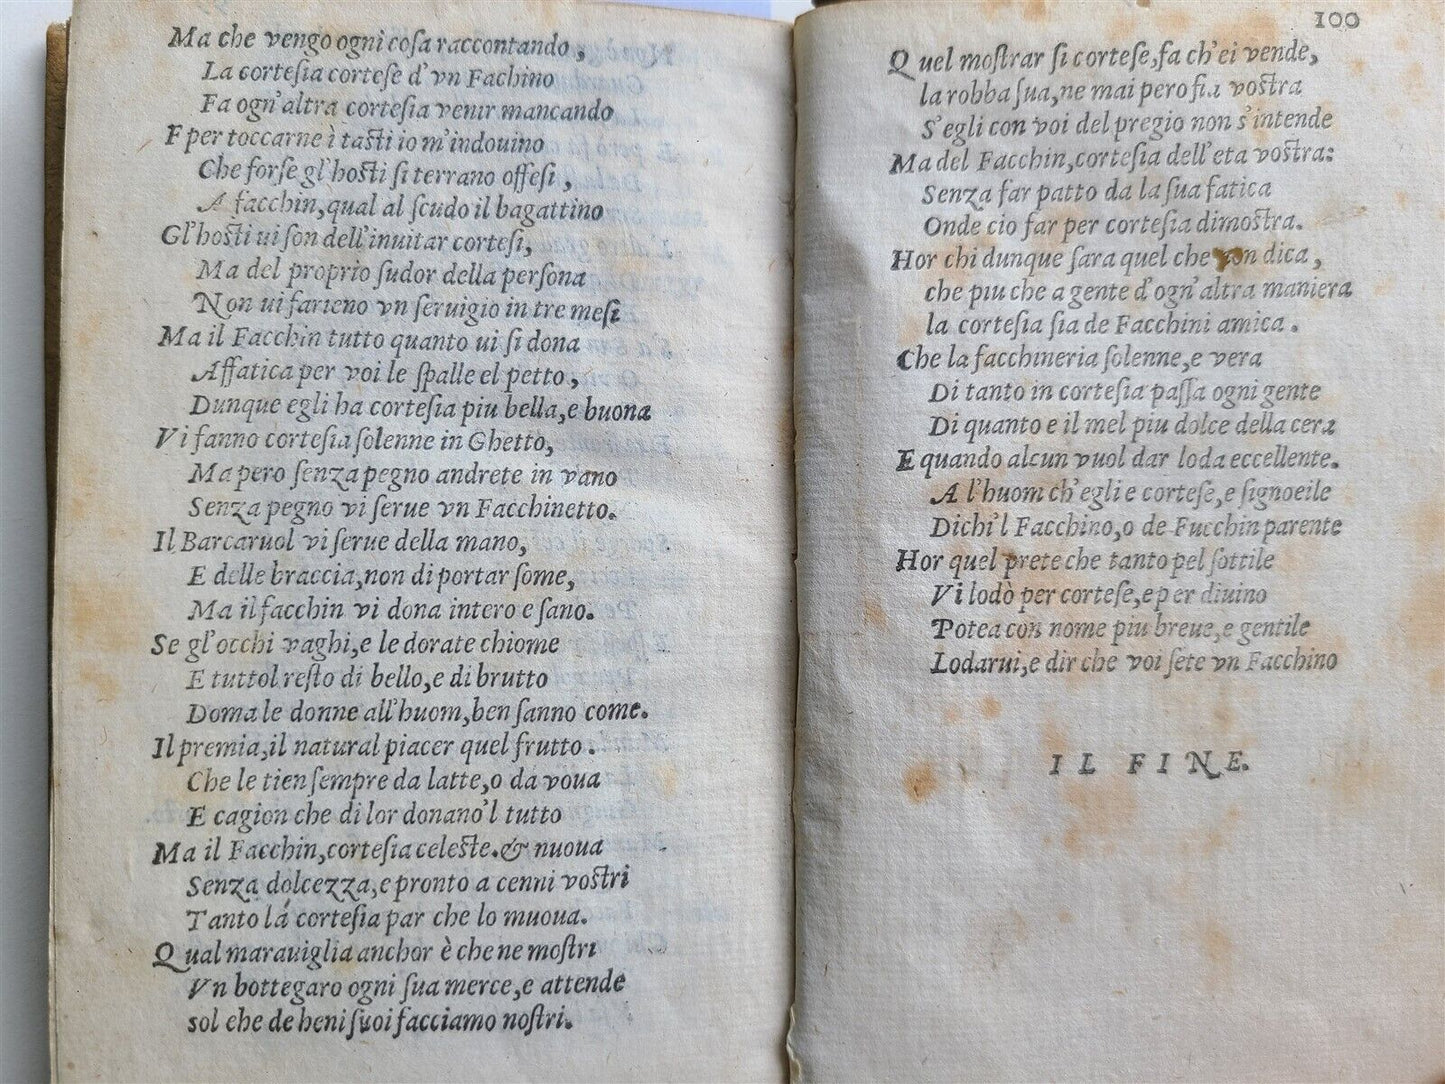 Ma che vengo ogni coſa raccontando,
La corteſia corteſe d'vn Fachino
Fa ogn'altra corteſia venir mancando
F per toccarne ì taſti io m'indouino
Che forſe gl'hoſti ſi terrano offeſi,
A facchin, qual al ſcudo il bagattino
Gl'hoſti ui ſon dell'inuitar corteſi,
Ma del proprio ſudor della perſona
Non ui farieno vn ſeruigio in tre meſi
Ma il Facchin tutto quanto ui ſi dona
Affatica per voi le ſpalle el petto,
Dunque egli ha corteſia piu bella, e buona
Vi fanno corteſia ſolenne in Ghetto,
Ma pero ſenza pegno andrete in vano
Senza pegno vi ſerue vn Facchinetto.
Il Barcaruol vi ſerue della mano,
E delle braccia, non di portar ſome,
Ma il facchin vi dona intero e ſano.
Se gl'occhi vaghi, e le dorate chiome
E tuttol reſto di bello, e di brutto
Doma le donne all'huom, ben ſanno come.
Il premia, il natural piacer quel frutto.
Che le tien ſempre da latte, o da voua
E cagion che di lor donano'l tutto
Ma il Facchin, corteſia celeſte. & nuoua
Senza dolcezza, e pronto a cenni voſtri
Tanto lá corteſia par che lo muoua.
Qual marauiglia anchor è che ne moſtri
Vn bottegaro ogni ſua merce, e attende
sol ehe de beni ſuoi facciamo noſtri.
100
Quel moſtrar ſi corteſe, fa ch'ei vende,
la robba ſua, ne mai pero fia voſtra
S'egli con voi del pregio non s'intende
Ma del Facchin, corteſia dell'eta voſtra:
Senza far patto da la ſua fatica
Onde cio far per corteſia dimoſtra.
Hor chi dunque ſara quel che dica,
che piu che a gente d'ogn'altra maniera
la corteſia ſia de Facchini amica.
Che la facchineria ſolenne, e vera
Di tanto in corteſia paſſa ogni gente
Di quanto e il mel piu dolce della cera
E quando alcun vuol dar loda eccellente.
A l'huom ch'egli e corteſe, e ſignoeile
Dichi'l Facchino, o de Fucchin parente
Hor quel prete che tanto pel ſottile
Vi lodò per corteſe, e per diuino
Potea con nome piu breue, e gentile
Lodarui, e dir che voi ſete vn Facchino
IL FINE.